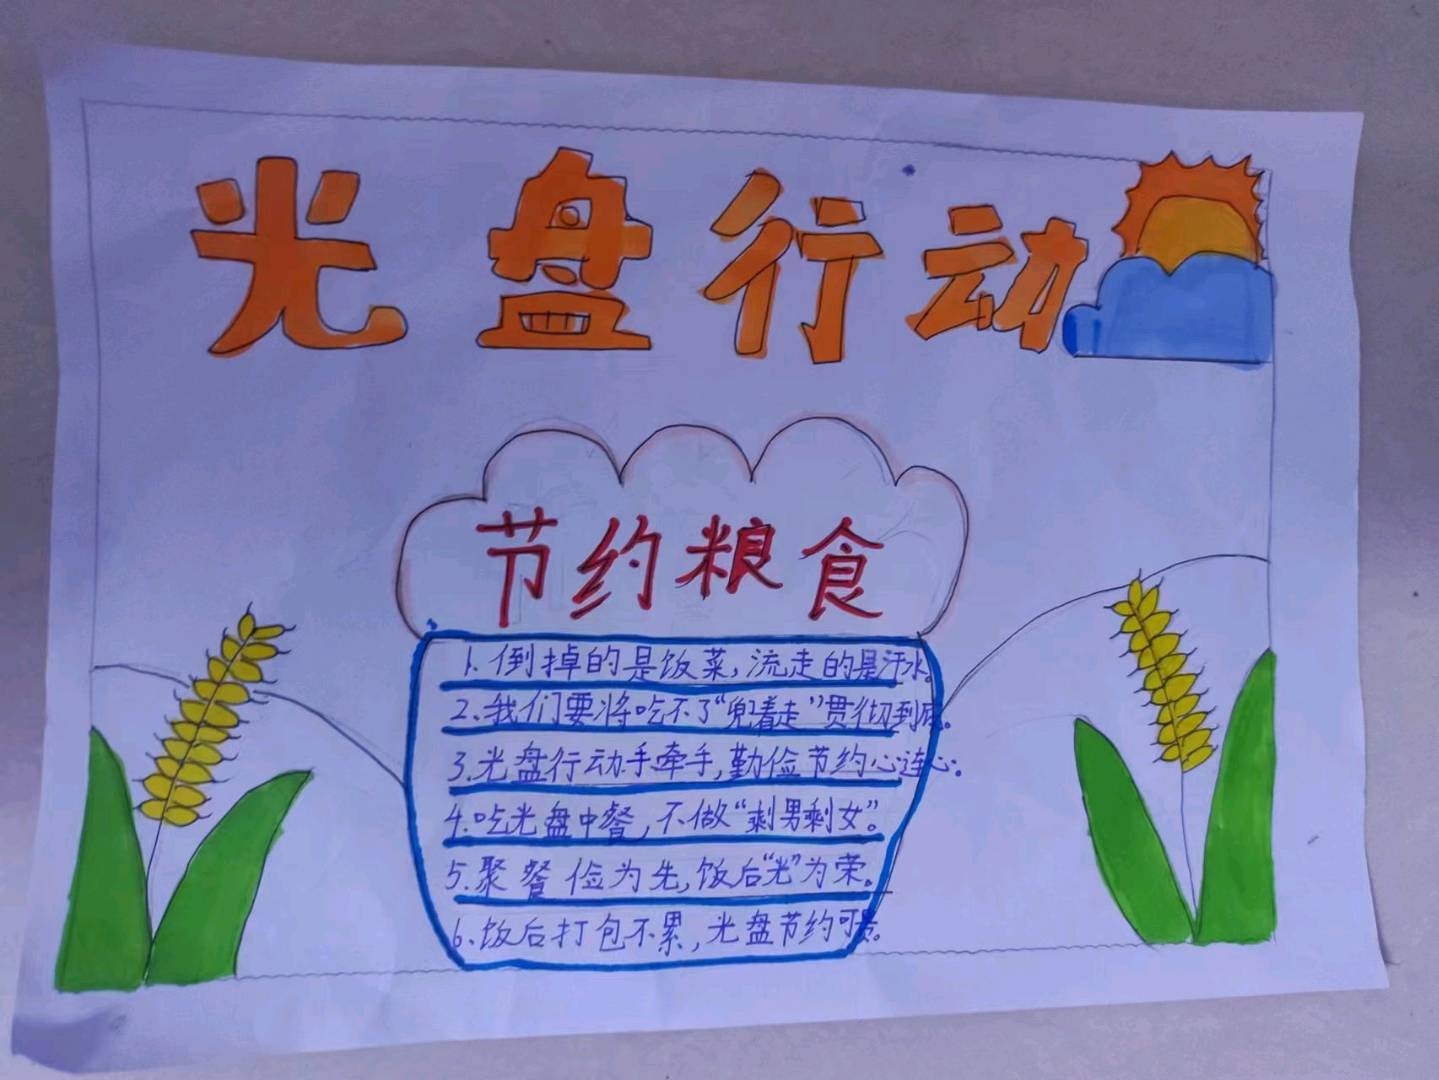 光盘行动
节约粮食
1.倒掉的是饭菜,流走的是汗水。
2、我们要将吃不了“兜着走”贯彻到底。
3.光盘行动手牵手,勤俭节约心连心。
4.吃光盘中餐,不做“剩男剩女”。
5.聚餐俭为先,饭后“光”为荣。
6、饭后打包不累,光盘节约可贵。